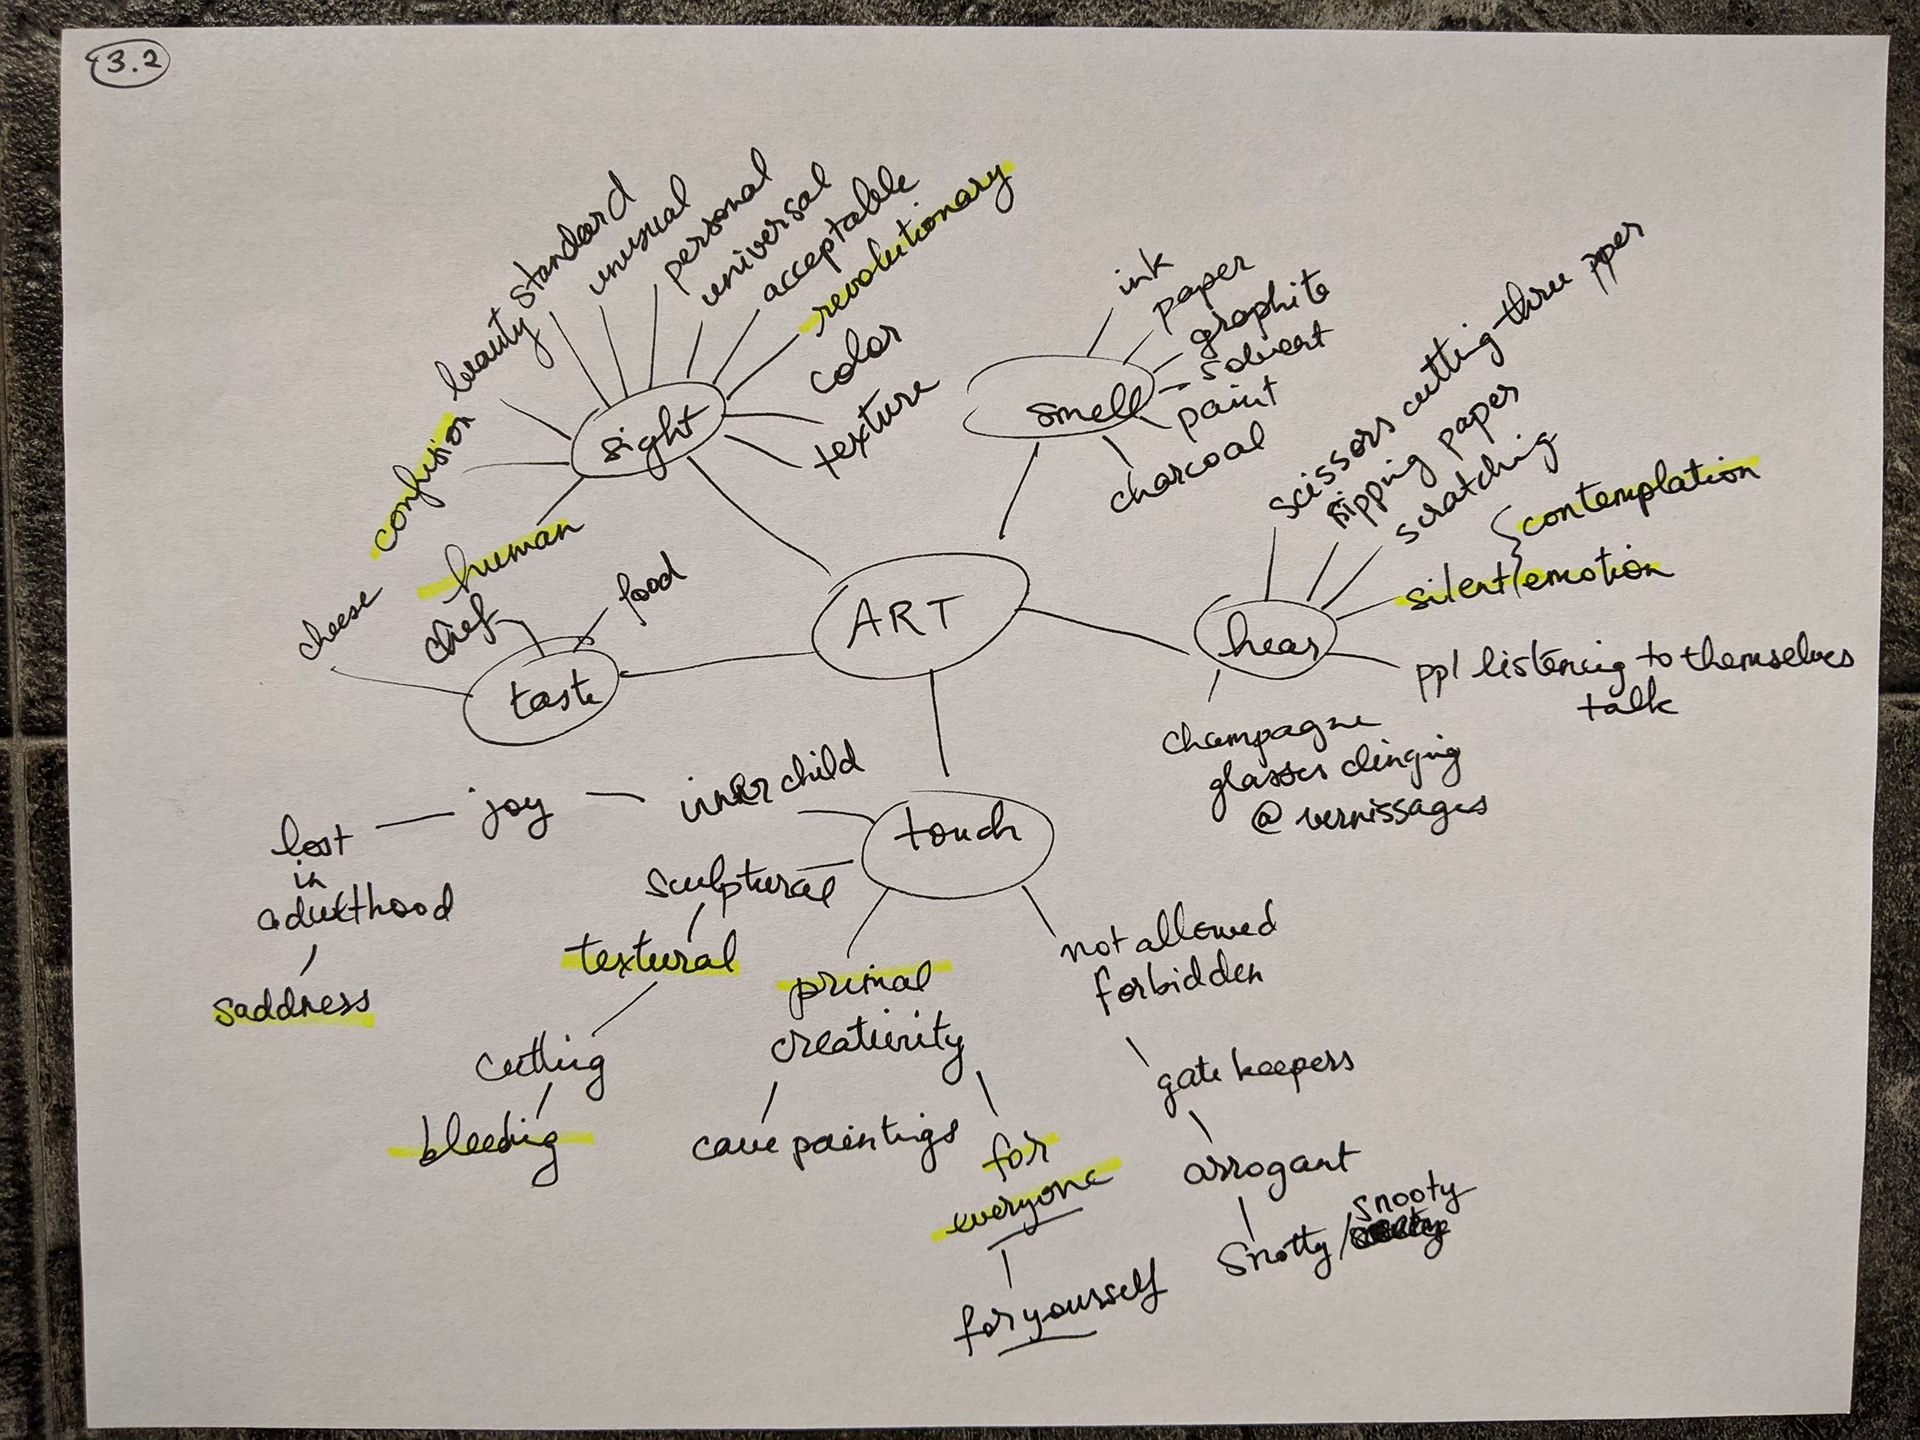 3.2
standard
unusual
personal
universal
acceptable
revolutionary
beauty
color
texture
confusion
human
sight
ink
paper
graphite
solvent
paint
charcoal
smell
scissors cutting three pper
ripping paper
scratching
contemplation
silent/emotion
hear
ppl listening to themselves
talk
champagne
glasses clinging
@ vernissages
ART
cheese
chef
food
taste
touch
inner child
joy
lost
in
adulthood
saddness
sculptural
textural
cutting
bleeding
primal
creativity
cave paintings
for
everyone
for yourself
not allowed
forbidden
gate keepers
arrogant
snooty
Snotty/